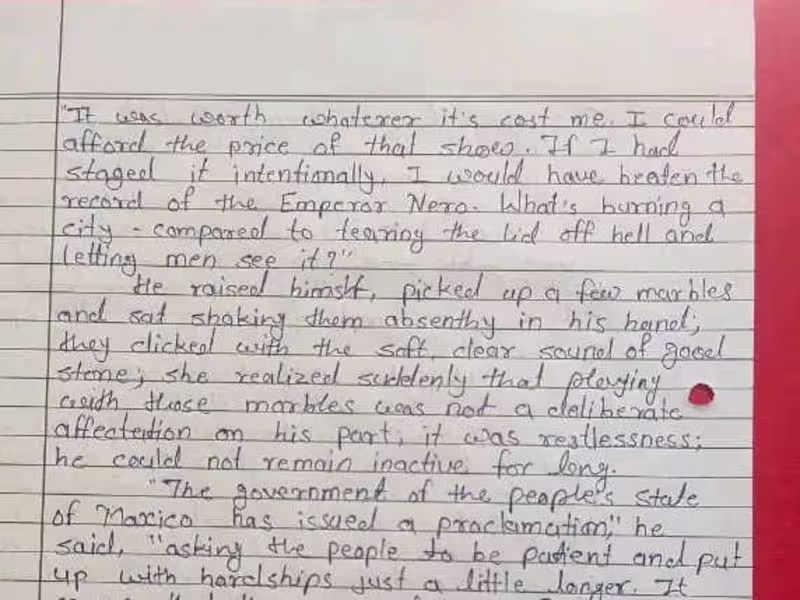 "It was worth whatever it's cost me. I could
afford the price of that show. If I had
staged it intentionally, I would have beaten the
record of the Emperor Nero. What's burning a
city - compared to tearing the lid off hell and
letting men see it?"
He raised himslf, picked up a few marbles
and sat shaking them absenthy in his hand;
they clicked with the soft, clear sound of good
stone; she realized suddenly that playing
with those marbles was not a deliberate
affectation on his part; it was restlessness;
he could not remain inactive for long.
"The government of the people's state
of Maxico has issued a proclamation," he
said, "asking the people to be patient and put
up with hardships just a little longer. It